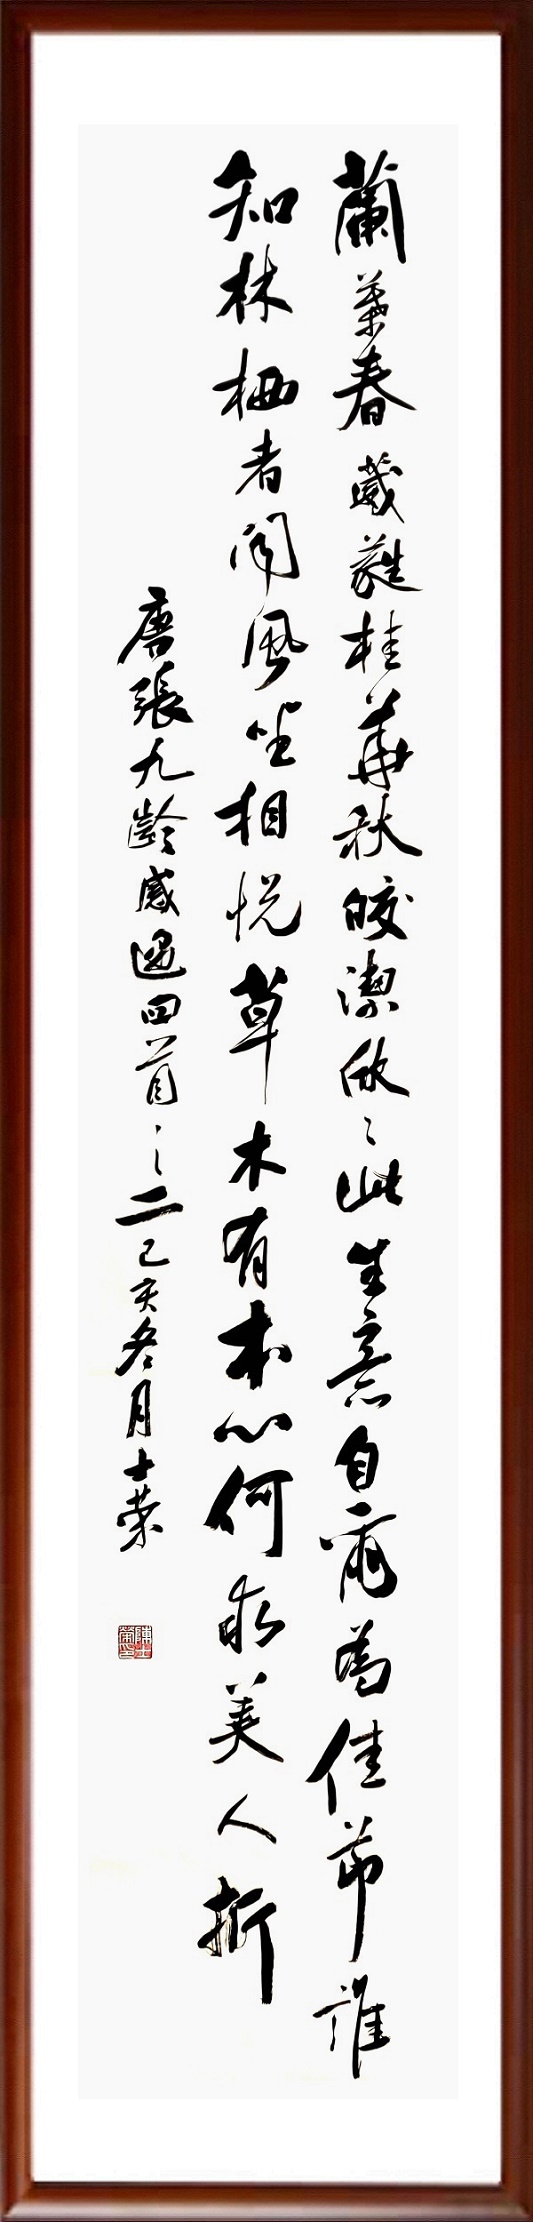 蘭葉春葳蕤桂華秋皎潔欣々此生意自爾為佳節誰
知林栖者聞風坐相悅草木有本心何求美人折
唐張九齡感遇四首之二己亥冬月士榮